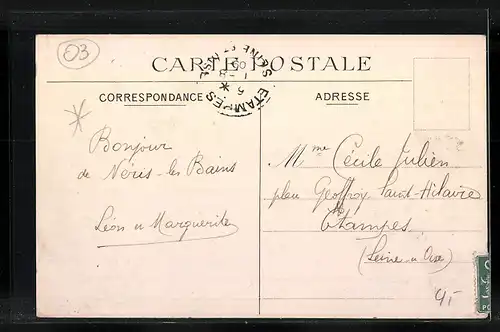 03
CARTE POSTALE
ETAMPES
SEINE ET OISE
CORRESPONDANCE
ADRESSE
Bonjour
de Néris-les Bains
Léon et Marguerite
Mme Cécile Julien
place Geoffroy Saint-Hilaire
Etampes
(Seine et Oise)
4,-